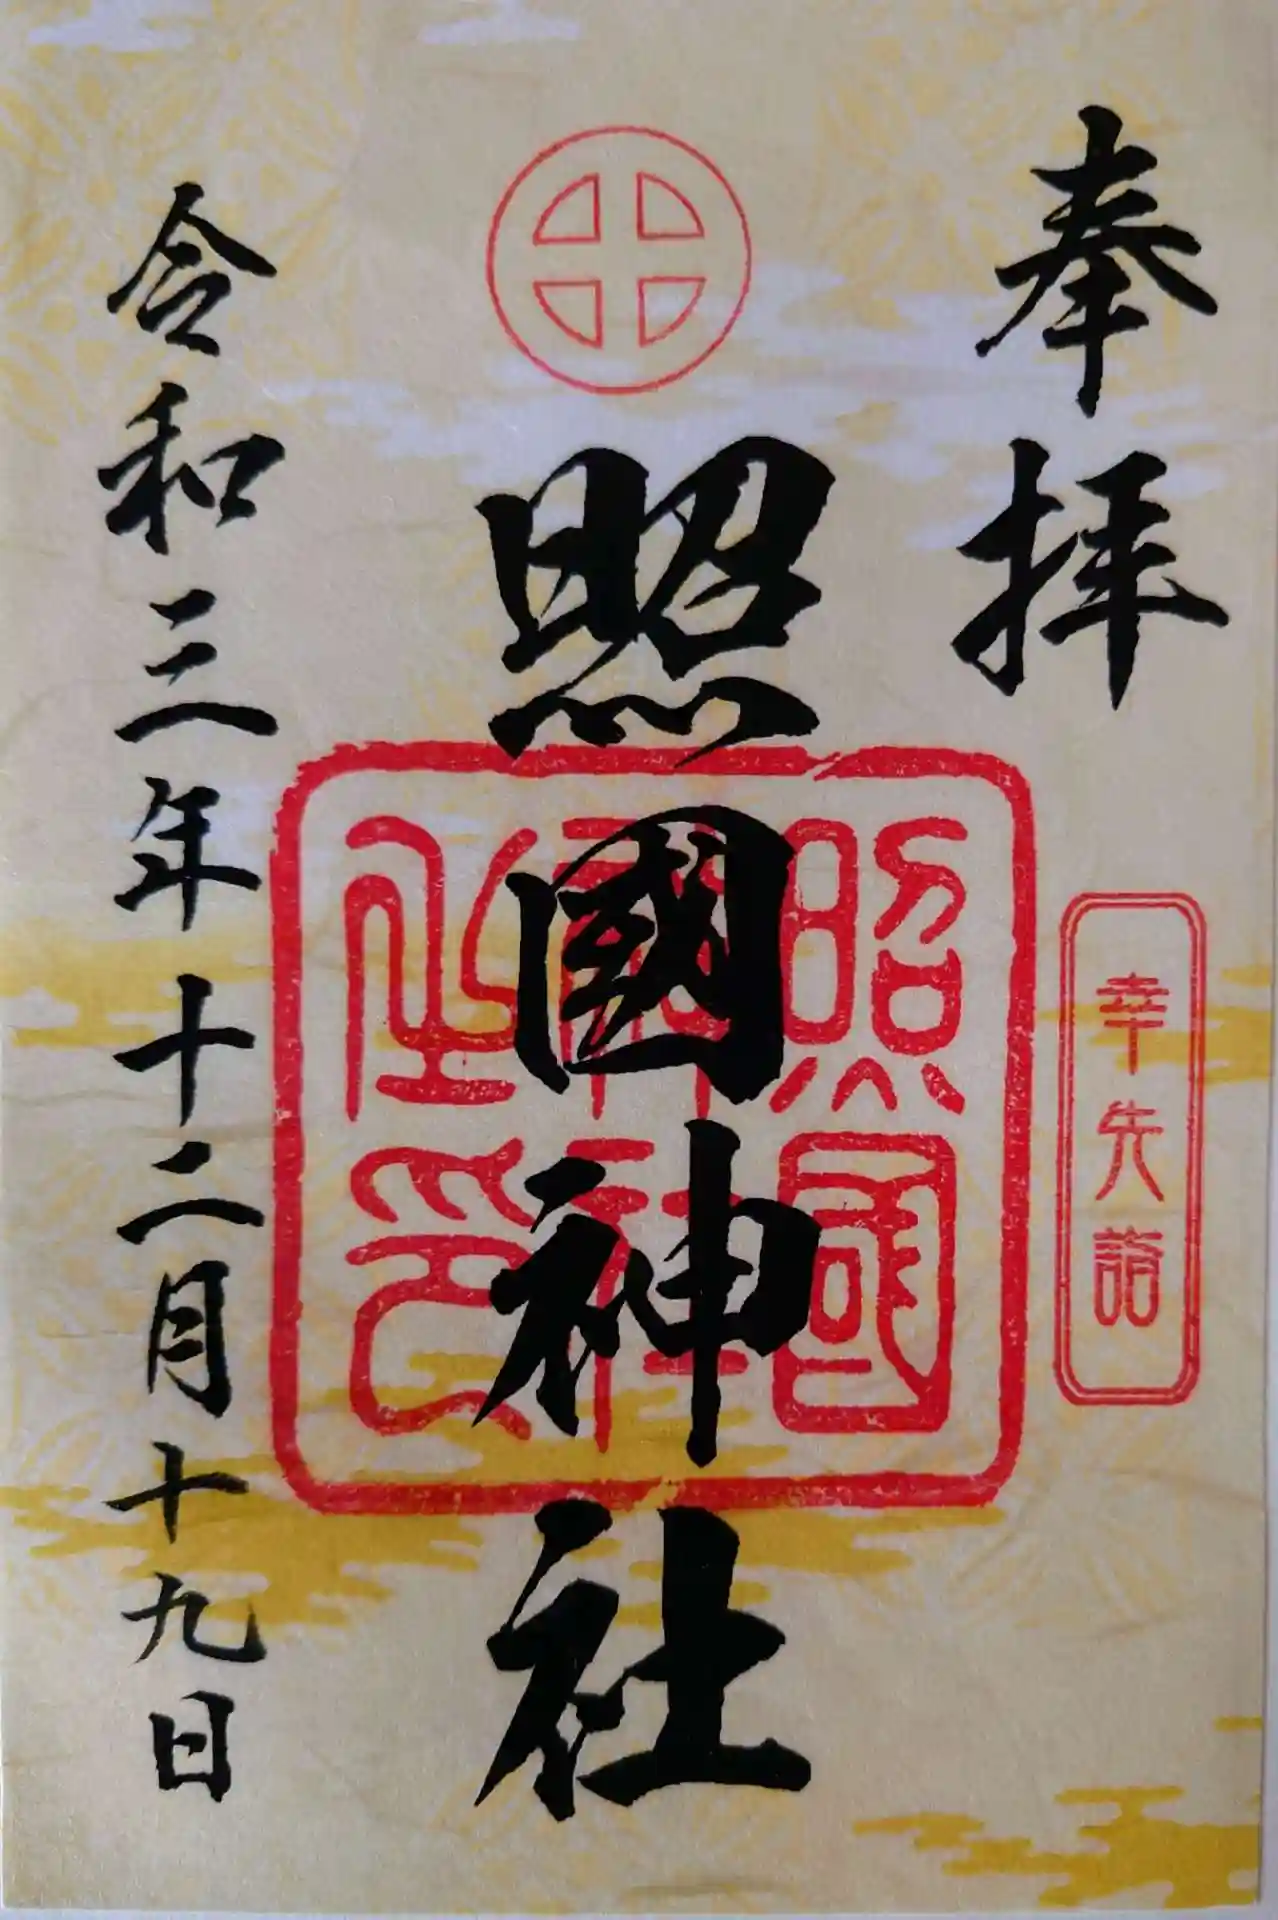 奉拝
幸先詣
照國神社
照國
神社
之印
令和三年十二月十九日